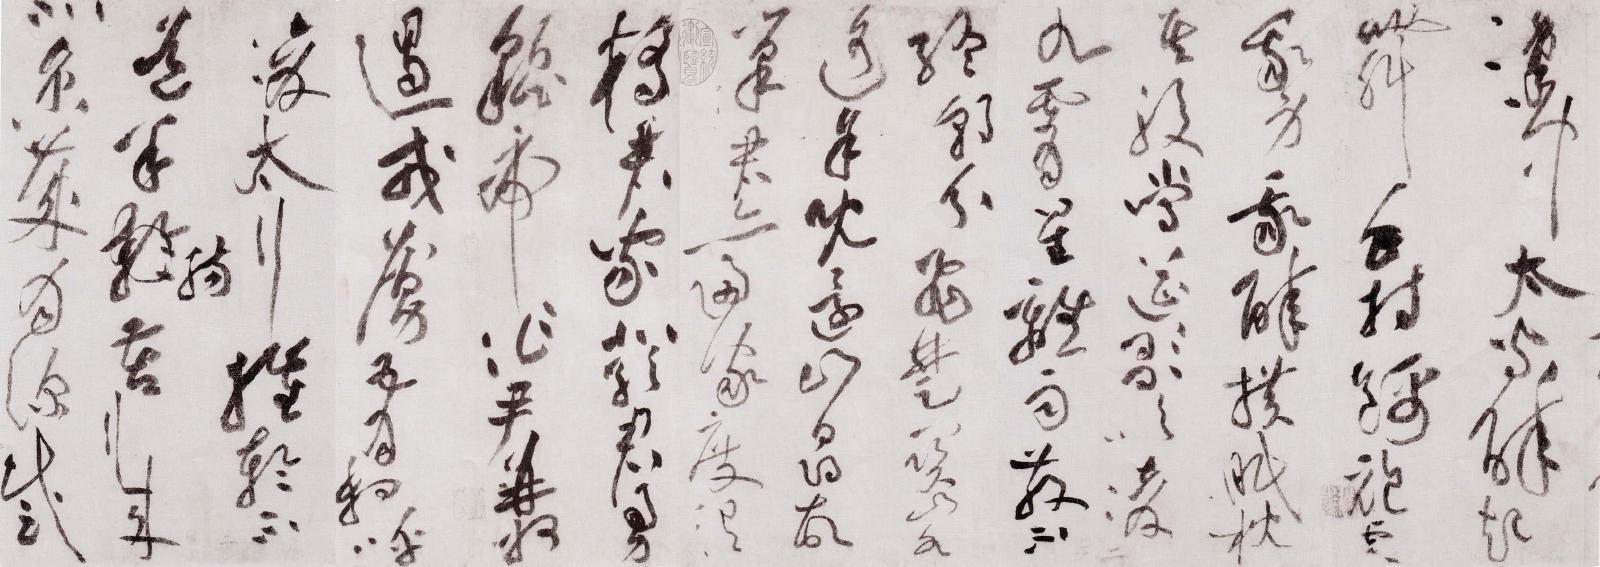 漢中太守醉起
舞手持錦袍覆
我身我醉橫眠枕
其股當筵意氣凌
九霄星離雨散不
終朝分飛楚關山水
遙余既還山尋故
巢君亦歸家度渭
橋君家嚴君勇
貔虎作尹并州
遏戎虜五月相呼
渡太行摧輪不
道羊腸苦行來
北京歲月深感